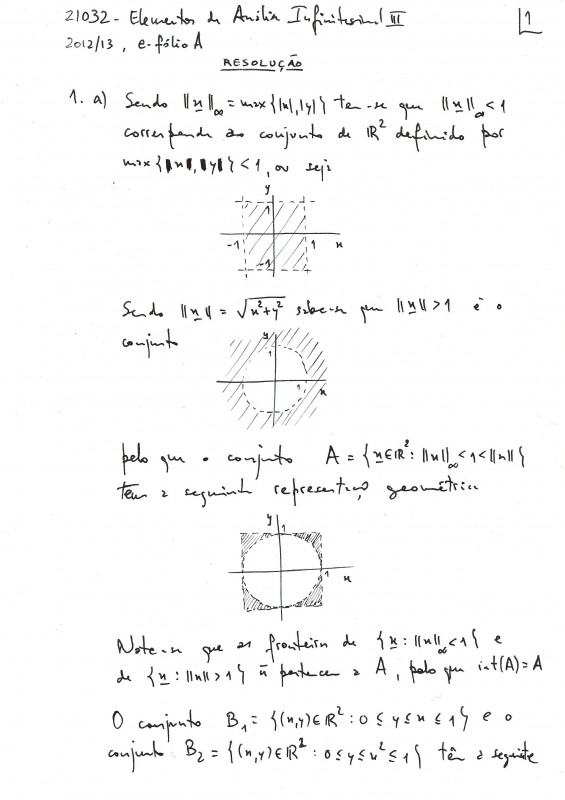 21032 - Elementos de Análise Infinitesimal III
1
2012/13, e-fólio A
RESOLUÇÃO
1. a) Sendo ||x||∞ = max{|x|,|y|} tem-se que ||x||∞ < 1
corresponde ao conjunto de ℝ² definido por
max{|x|,|y|} < 1, ou seja
y
1
-1 1 x
-1
Sendo ||x|| = √x²+y² sabe-se que ||x|| > 1 é o
conjunto
y
1
1 x
pelo que o conjunto A = {x∈ℝ²: ||x||∞ < 1 < ||x||}
tem a seguinte representação geométrica
y
1
1
x
Note-se que as fronteiras de {x: ||x||∞ < 1} e
de {x: ||x|| > 1} ñ pertencem a A, pelo que int(A) = A
O conjunto B₁ = {(x,y)∈ℝ²: 0 ≤ y ≤ x ≤ 1} e o
conjunto B₂ = {(x,y)∈ℝ²: 0 ≤ y ≤ x² ≤ 1} têm a seguinte